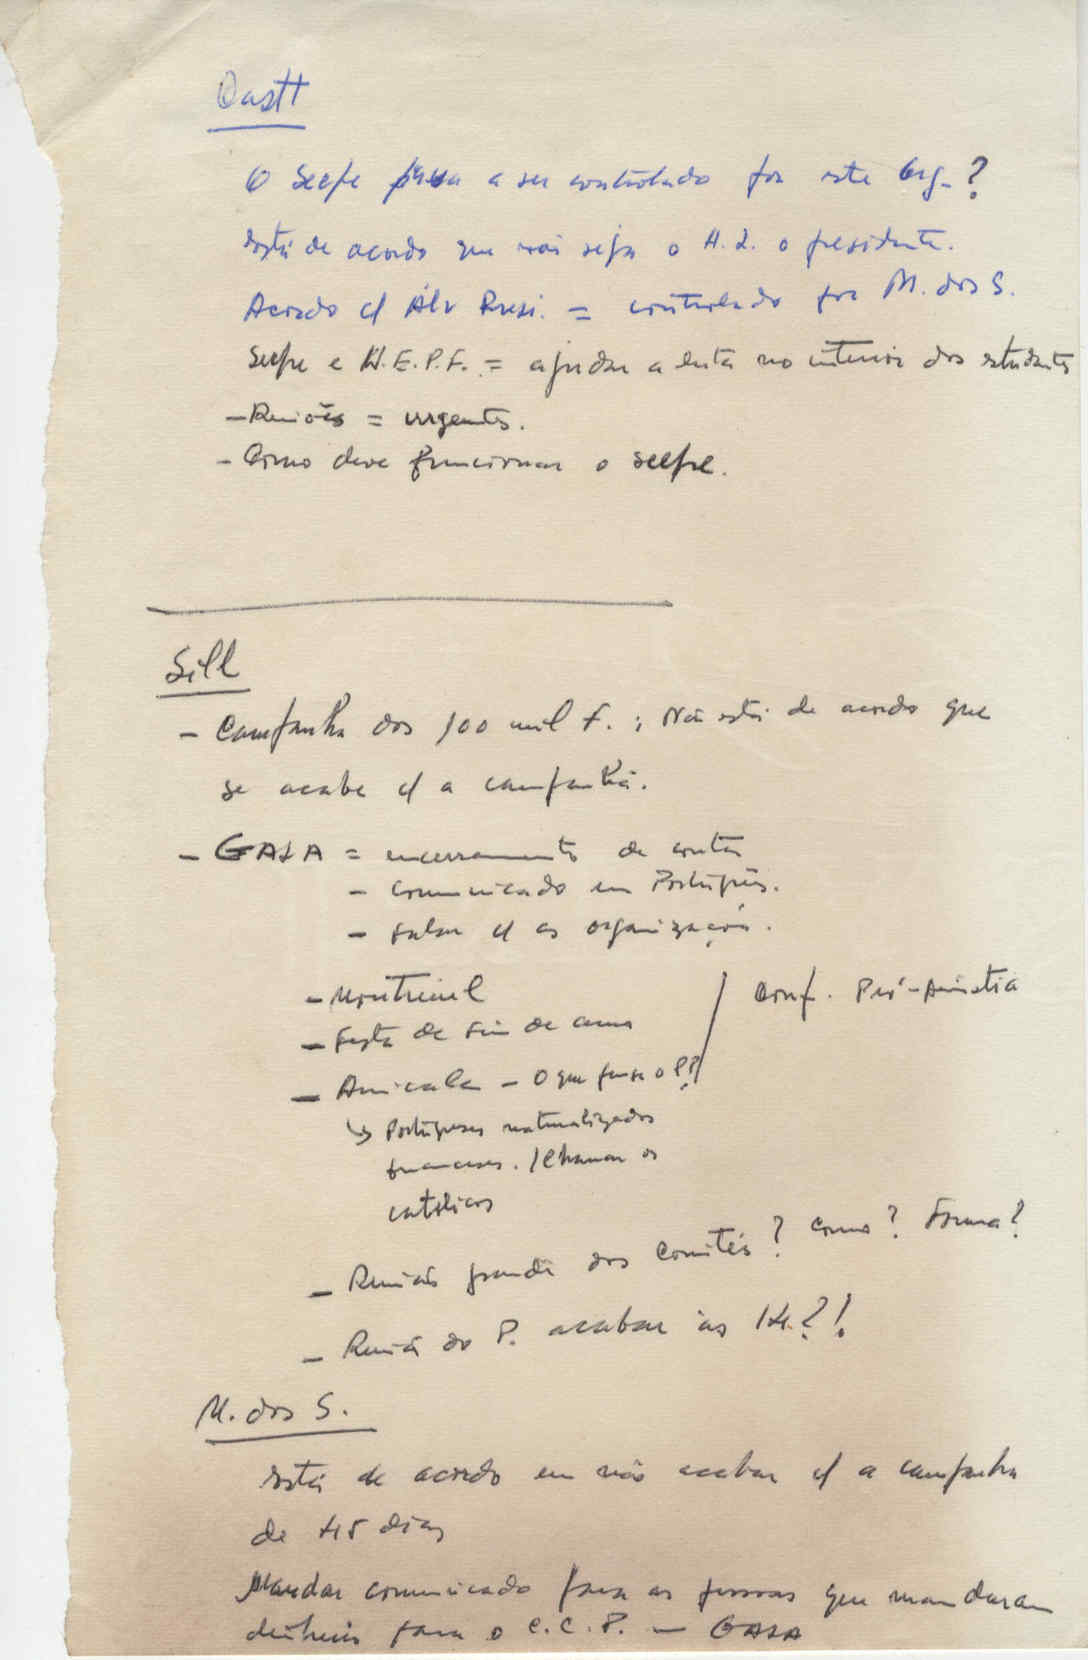 O Seefe a ser controlado por este Org. ?
Está de acordo que não seja o H. L. o presidente.
Acordo c/ Álv = controlado por M. dos S.
Seefe e = ajudar a luta no interior dos estudantes
- Reuniões = urgentes.
- Como deve funcionar o seefe.
Sill
- Campanha dos 100 mil F. ; Não está de acordo que
se acabe c/ a campanha.
- GASA = encerramento de contas
- Comunicado em Português.
- Falar c/ as organizações.
- Montreuil
- Festa de Fim de ano
Conf. Pró-Amnistia
- Amicale - O que pensa o P?
↳ Portugueses naturalizados
franceses. / Chamar os
católicos
- Reunião grande dos Comités ? Como ? Forma ?
- Reunião do P. acabar às 14. ? !
M. dos S.
Está de acordo em não acabar c/ a campanha
de 45 dias
Mandar comunicado para as pessoas que mandaram
dinheiro para o C. C. P. - GASA